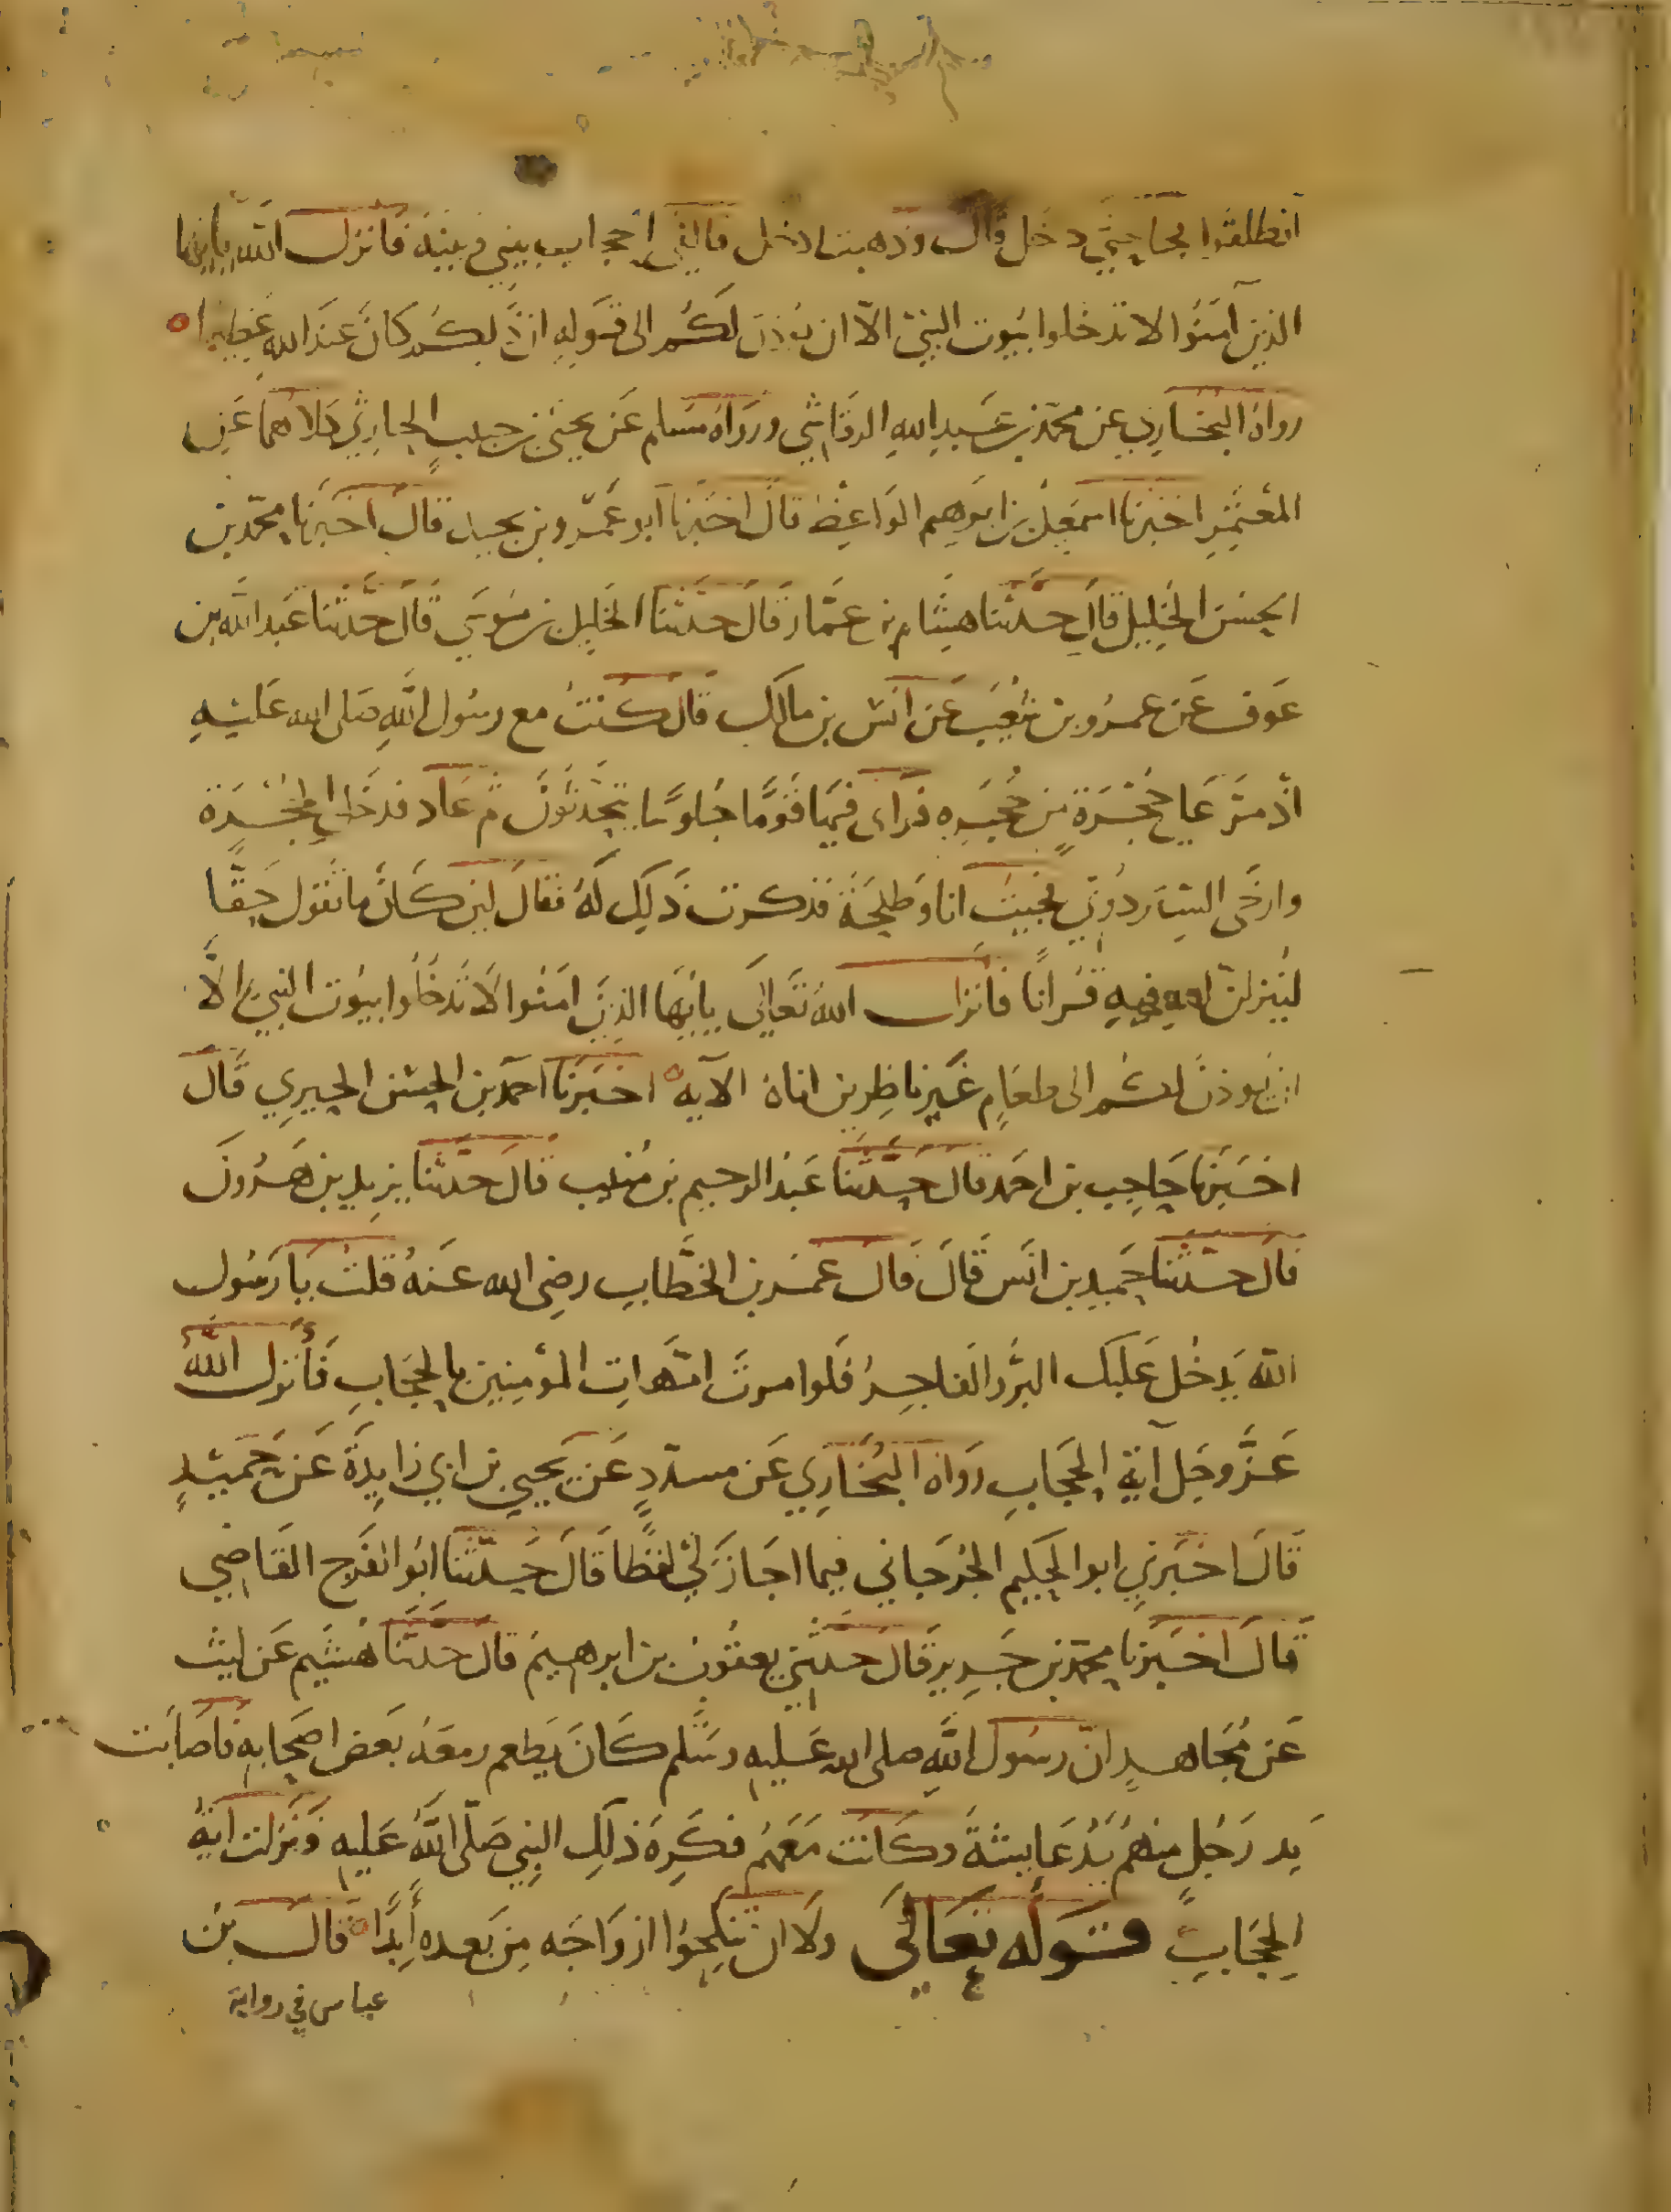 انطلقوا فجاحتي دخل قال وذهبت ادخل فالقى الحجاب بيني وبينه فانزل الله يايها
الذين آمنوا لا تدخلوا بيوت النبي الا ان يؤذن لكم الى قوله ان ذلكم كان عند الله عظيما
رواه البخاري عن محمد بن عبد الله الرقاشي ورواه مسلم عن يحيى بن حبيب الحارثي كلاهما عن
المعتمر اخبرنا اسمعيل بن ابرهيم الواعظ قال اخبرنا ابو عمرو بن نجيد قال اخبرنا محمد بن
الحسن الخليل قال حدثنا هشام بن عمار قال حدثنا الخليل بن موسى قال حدثنا عبد الله بن
عوف عن عمرو بن شعيب عن انس بن مالك قال كنت مع رسول الله صلى الله عليه
اذ مر على حجرة من حجره فراى فيها قوما جلوسا يتحدثون ثم عاد فدخل الحجرة
وارخى الستر دوني فجيت ابا طلحة فذكرت ذلك له فقال لين كان ما تقول حقا
لينزلن الله فيه قرانا فانزل الله تعالى يايها الذين امنوا لا تدخلوا بيوت النبي الا
ان يوذن لكم الى طعام غير ناظرين اناه الآيه اخبرنا احمد بن الحسن الحيري قال
اخبرنا حاجب بن احمد قال حدثنا عبد الرحيم بن منيب قال حدثنا يزيد بن هرون
قال حدثنا حميد بن انس قال قال عمر بن الخطاب رضى الله عنه قلت يا رسول
الله يدخل عليك البر والفاجر فلو امرت امهات المؤمنين بالحجاب فأنزل الله
عز وجل آية الحجاب رواه البخاري عن مسدد عن يحيى بن ابي زايدة عن حميد
قال اخبرني ابو الحكيم الجرجاني فيما اجازني لفظا قال حدثنا ابو الفرج القاضي
قال اخبرنا محمد بن جرير قال حدثني يعقوب بن ابرهيم قال حدثنا هشيم عن ليث
عن مجاهد ان رسول الله صلى الله عليه وسلم كان يطعم ومعه بعض اصحابه فاصابت
يد رجل منهم يد عايشة وكانت معهم فكره ذلك النبي صلى الله عليه ونزلت آية
الحجاب قوله تعالى ولا ان تنكحوا ازواجه من بعده أبدا قال بن
عباس في رواية